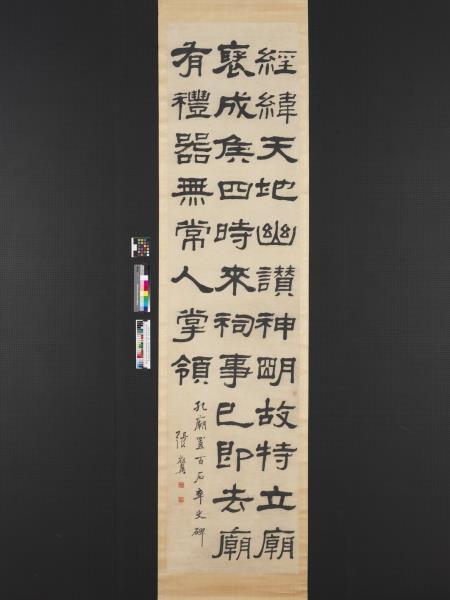 經緯天地幽讚神明故特立廟
褒成侯四時來祠事已即去廟
有禮器無常人掌領
孔廟置百石卒史碑
張祖翼